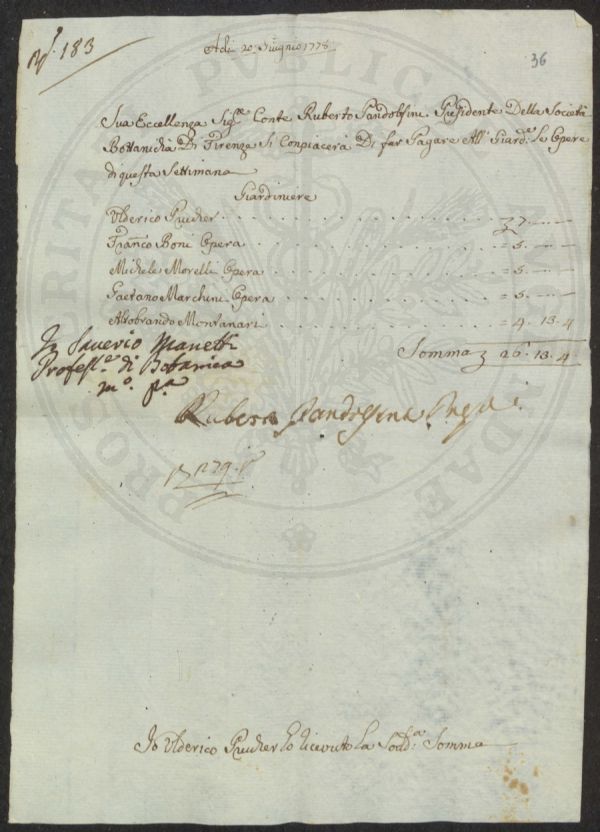 N.º 183
Adi 20. Giugnio 1778
36
Sua Eccellenza Sig.re Conte Ruberto Pandolfini Presidente Della Società
Bottanicha Di Firenze Si Conpiacerà Di far Pagare All' Giard.e Le Opere
di questa Settimana
Giardiniere
Ulderico Prucher . . . . . . . . . . 7. — —
Franco Boni Opera . . . . . . . . . = 5. — —
Michele Morelli Opera . . . . . . . . = 5. — —
Gaetano Marchini Opera . . . . . . . . = 5. — —
Altobrando Montanari . . . . . . . . = 4. 13. 4
Saverio Manetti
Profess.e di Botanica
m.o p.a
Somma 26. 13. 4
Ruberto Pandolfini
Io Ulderico Prucher ho ricevuto La Sod.a Somma
PUBLICAE